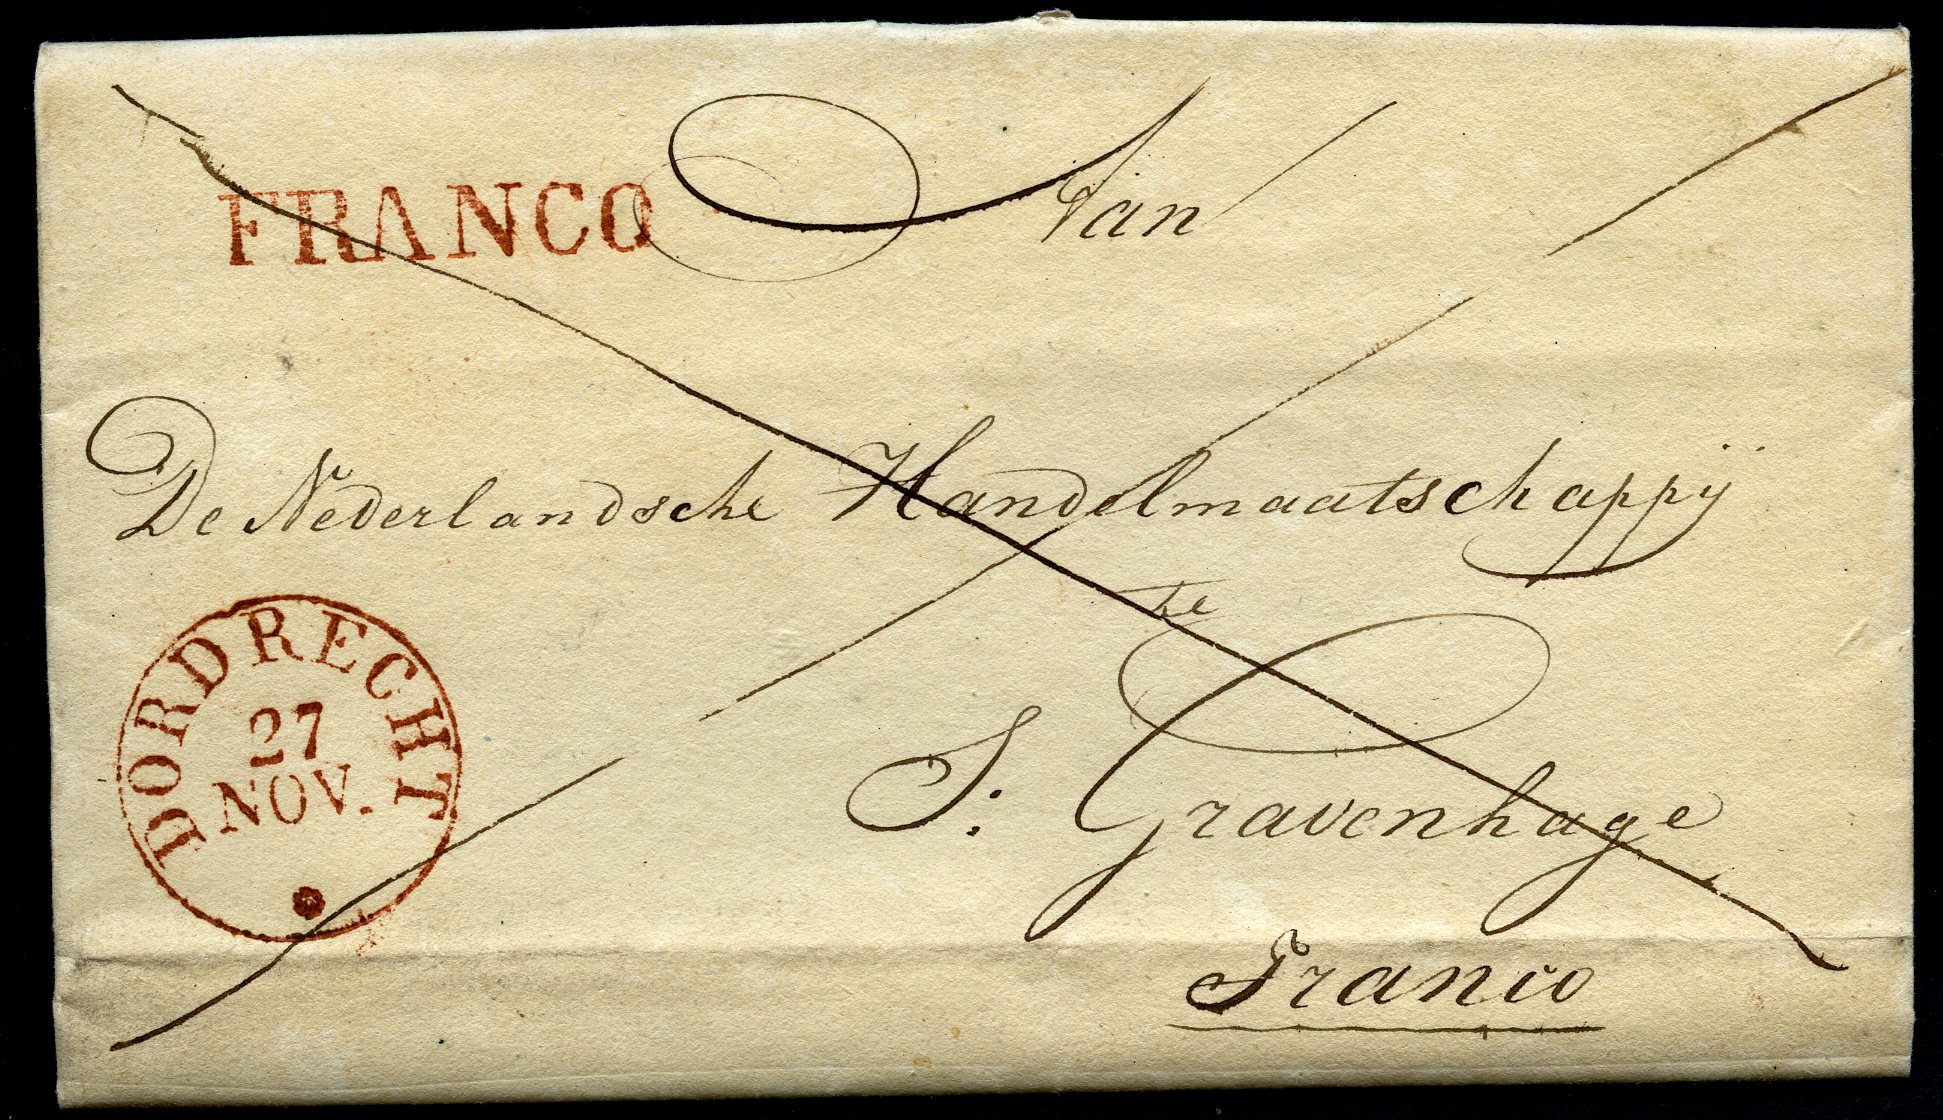 FRANCO
Aan
De Nederlandsche Handelmaatschappij
te
S: Gravenhage
Franco
DORDRECHT
27
NOV.